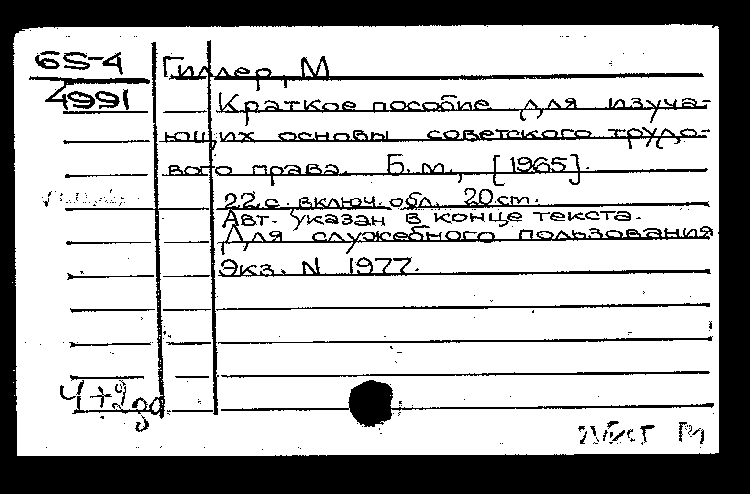 6S-4
4991
Гиллер, М
Краткое пособие для изуча-
ющих основы советского трудо-
вого права. Б.м., [1965].
22 с. включ. обл. 20 cm.
Авт. указан в конце текста.
Для служебного пользования
Экз. N 1977.
4+2